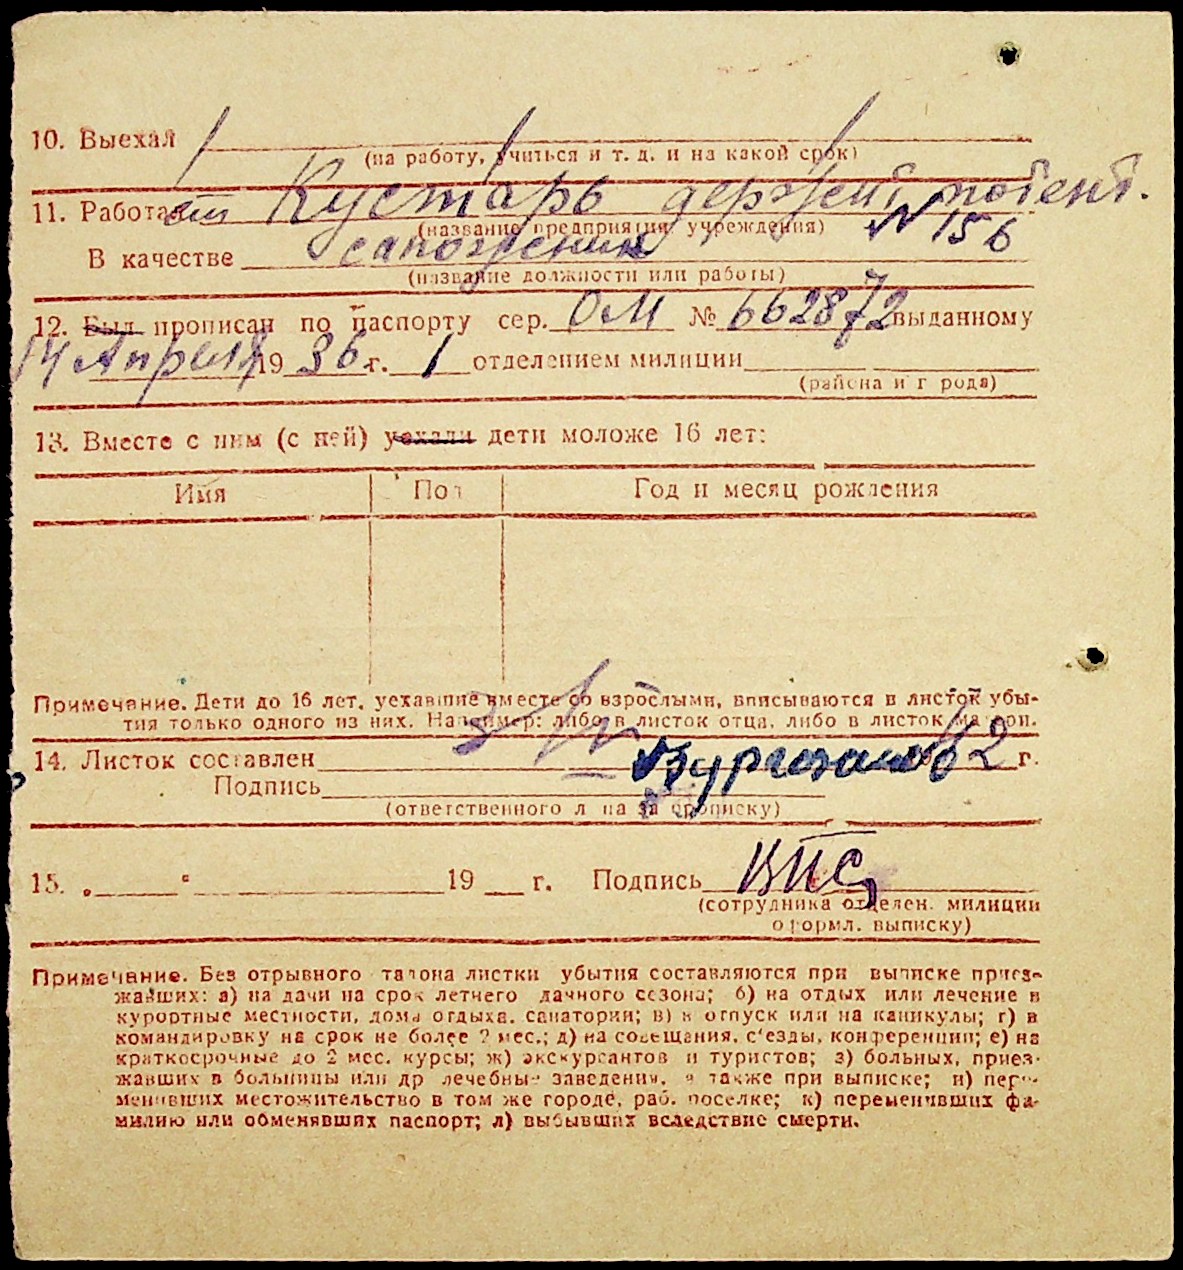 10. Выехал
(на работу, учиться и т. д. и на какой срок)
11. Работает Кустарь держит потент.
(название предприятия, учреждения) N 156
В качестве сапожник
(название должности или работы)
12. Был прописан по паспорту сер. ОМ № 662872 выданному
14 Апреля 1936 г. 1 отделением милиции
(района и города)
13. Вместе с ним (с ней) уехали дети моложе 16 лет:
Имя Пол Год и месяц рождения
Примечание. Дети до 16 лет, уехавшие вместе со взрослыми, вписываются в листок убы-
тия только одного из них. Например: либо в листок отца, либо в листок матери.
14. Листок составлен 42 г.
Подпись
(ответственного лица за прописку)
15. „ “ 19 г. Подпись
(сотрудника отделен. милиции
оформл. выписку)
Примечание. Без отрывного талона листки убытия составляются при выписке приез-
жавших: а) на дачи на срок летнего дачного сезона; б) на отдых или лечение в
курортные местности, дома отдыха, санатории; в) в отпуск или на каникулы; г) в
командировку на срок не более 2 мес.; д) на совещания, с'езды, конференции; е) на
краткосрочные до 2 мес. курсы; ж) экскурсантов и туристов; з) больных, приез-
жавших в больницы или др лечебные заведения, а также при выписке; и) пере-
менивших местожительство в том же городе, раб. поселке; к) переменивших фа-
милию или обменявших паспорт; л) выбывших вследствие смерти.